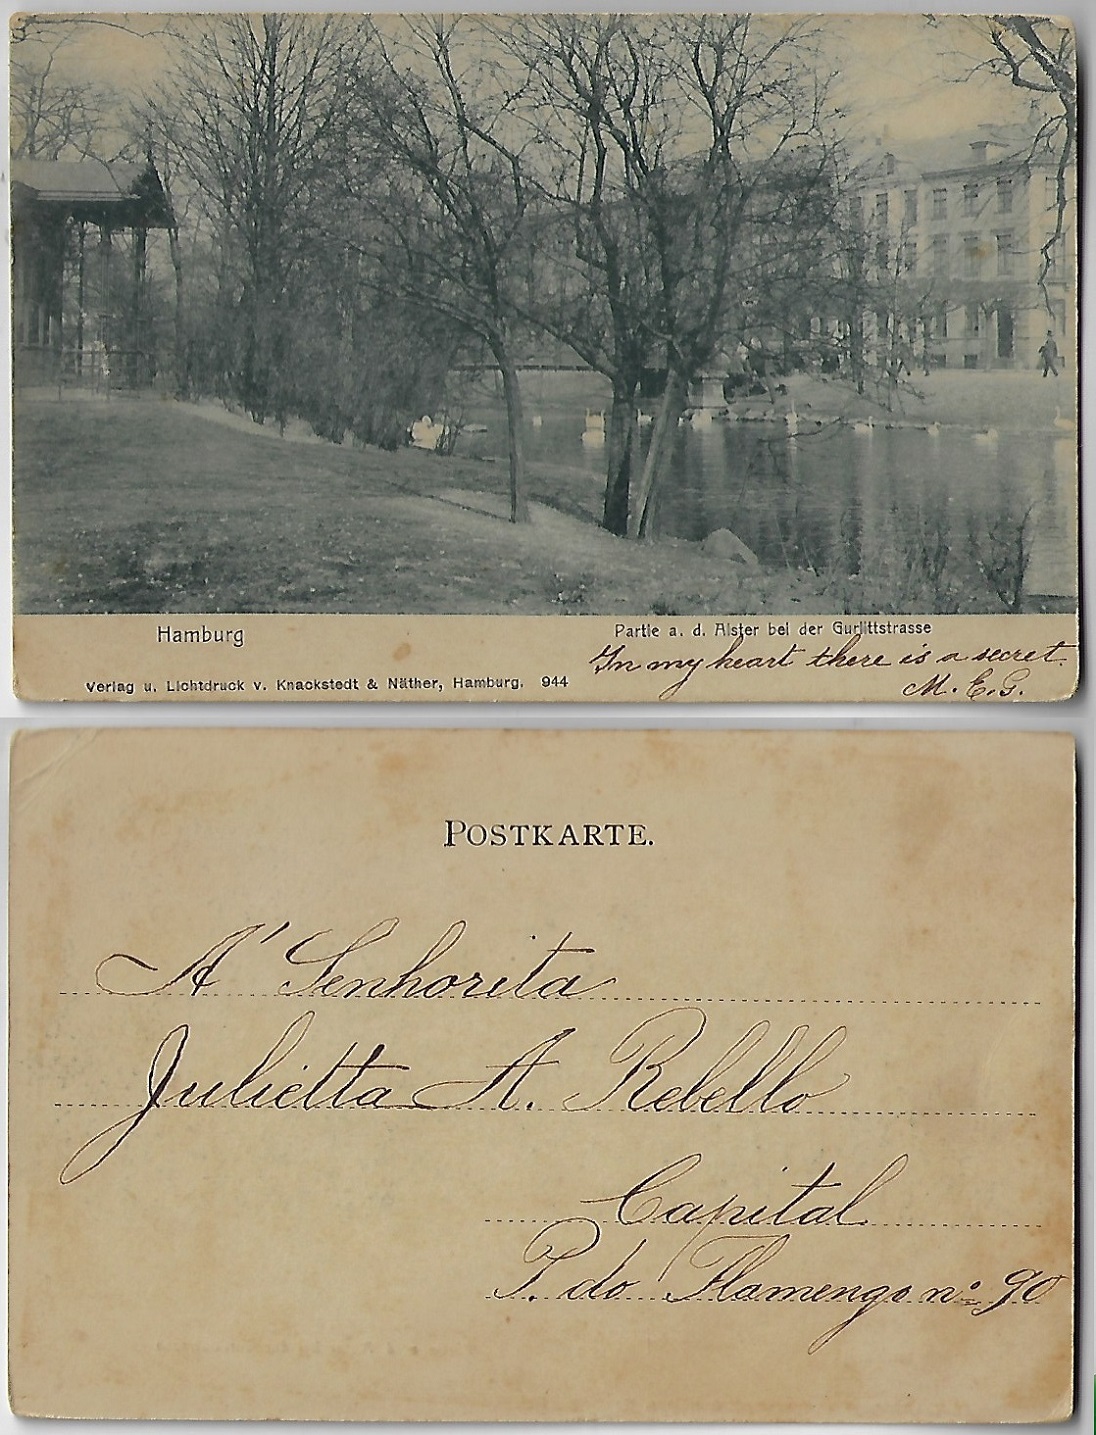 Hamburg
Partie a. d. Alster bei der Gurlittstrasse
In my heart there is a secret.
M. E. G.
Verlag u. Lichtdruck v. Knackstedt & Näther, Hamburg. 944
POSTKARTE.
A' Senhorita
Julietta A. Rebello
Capital
P. do Flamengo nº 90